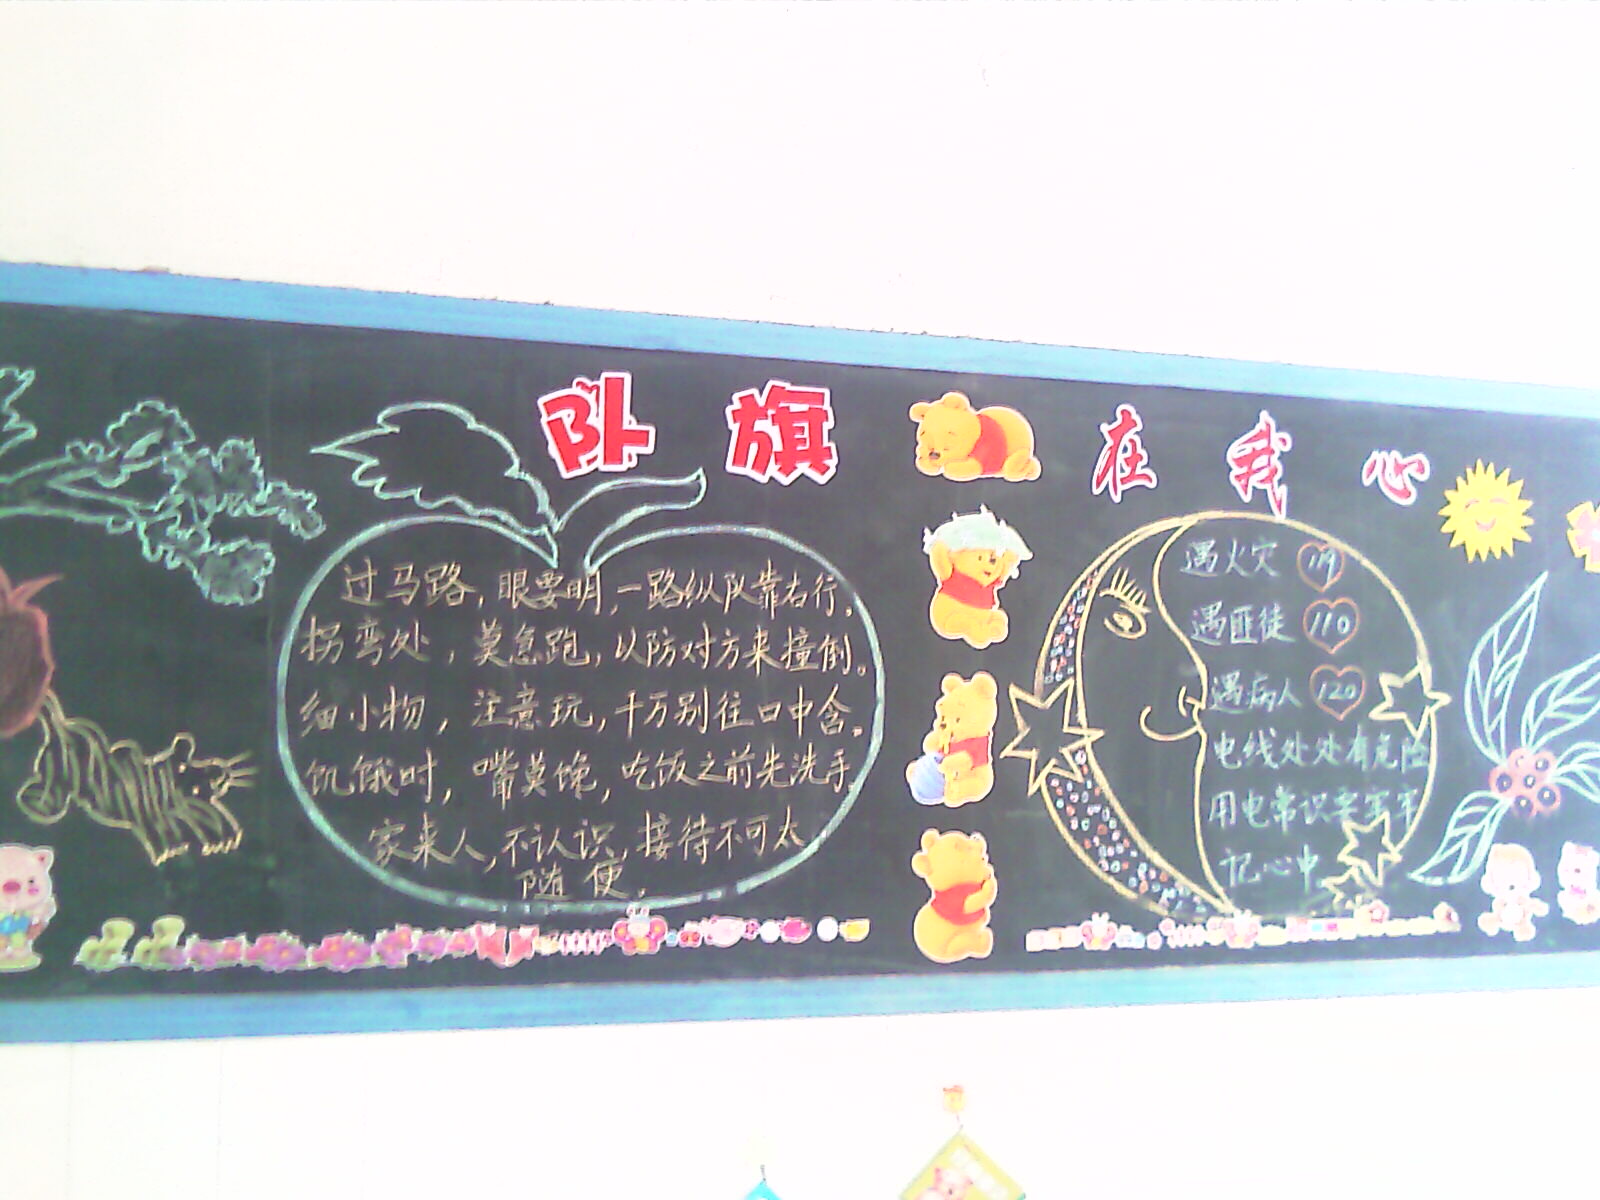 队旗在我心
过马路,眼要明,一路纵队靠右行。
拐弯处,莫急跑,以防对方来撞倒。
细小物,注意玩,千万别往口中含。
饥饿时,嘴莫馋,吃饭之前先洗手。
家来人,不认识,接待不可太
随便。
遇火灾 119
遇匪徒 110
遇病人 120
电线处处有危险
用电常识要牢牢
记心中